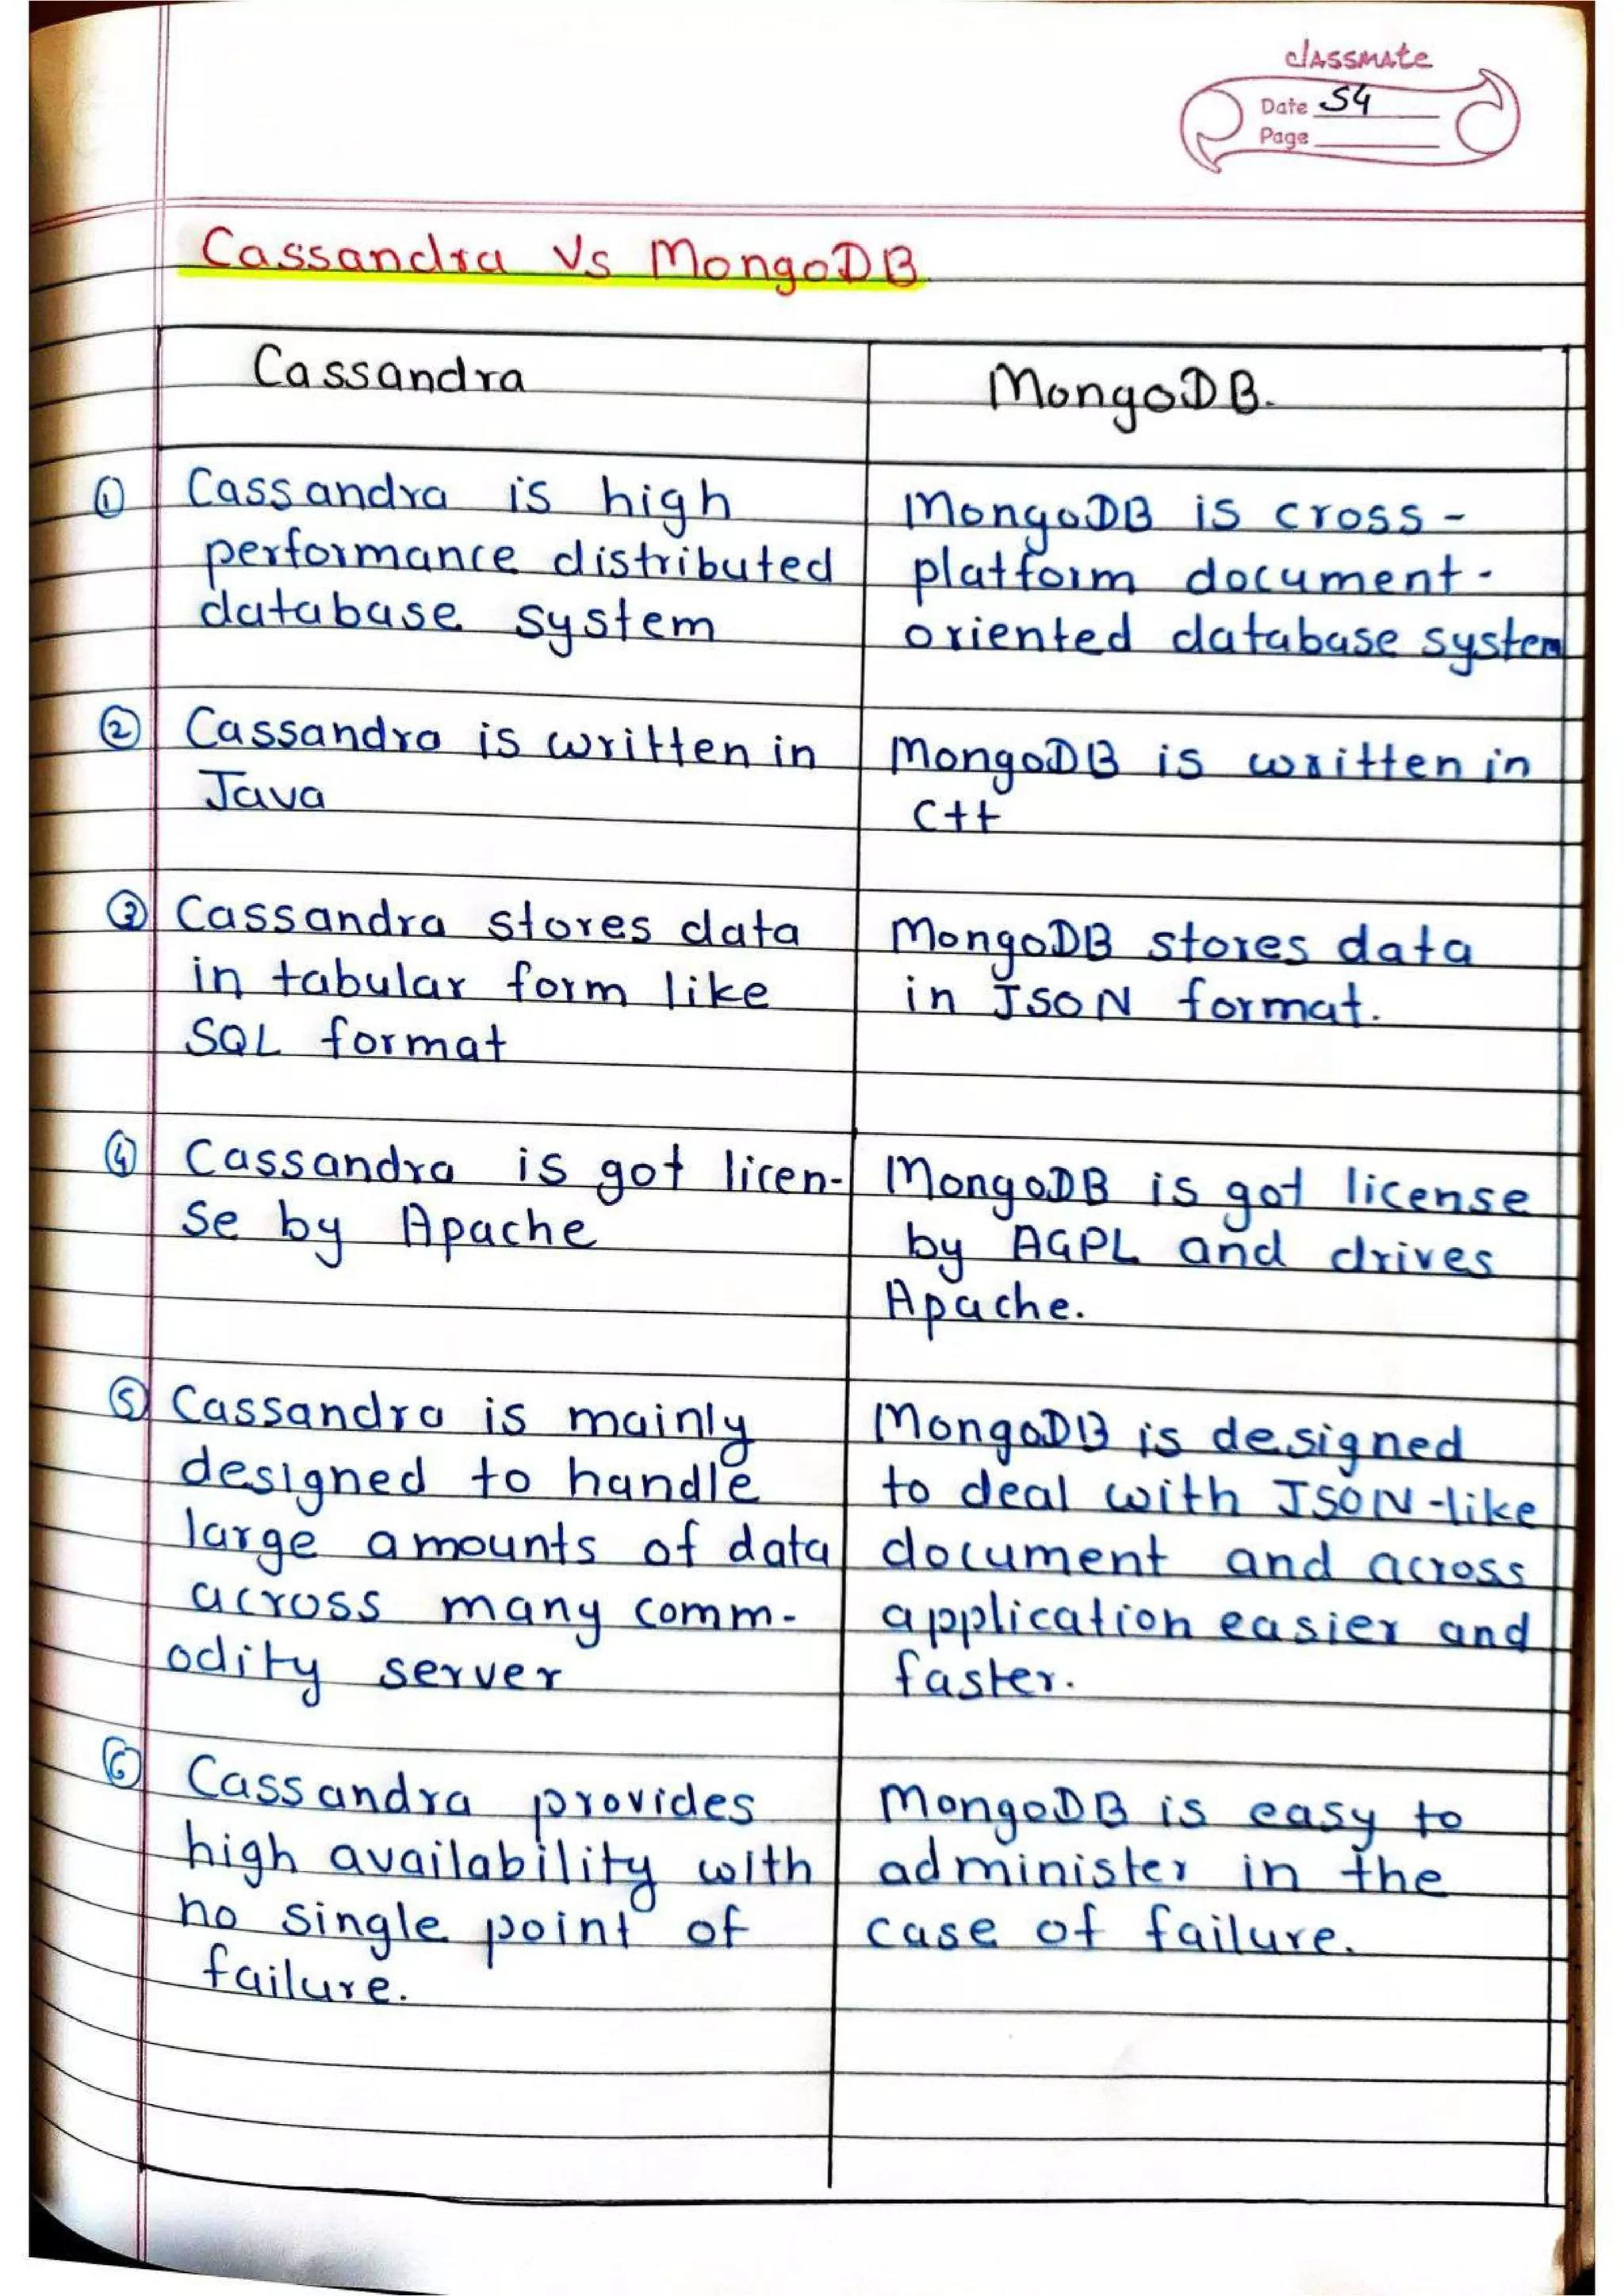 classmate
Date 54
Page
Cassandra Vs MongoDB
Cassandra
MongoDB.
① Cassandra is high
performance distributed
database system
MongoDB is cross-
platform document-
oriented database system
② Cassandra is written in
Java
MongoDB is written in
C++
③ Cassandra stores data
in tabular form like
SQL format
MongoDB stores data
in JSON format.
④ Cassandra is got licen-
se by Apache
MongoDB is got license
by AGPL and drives
Apache.
⑤ Cassandra is mainly
designed to handle
large amounts of data
across many comm-
odity server
MongoDB is designed
to deal with JSON-like
document and across
application easier and
faster.
⑥ Cassandra provides
high availability with
no single point of
failure.
MongoDB is easy to
administer in the
case of failure.